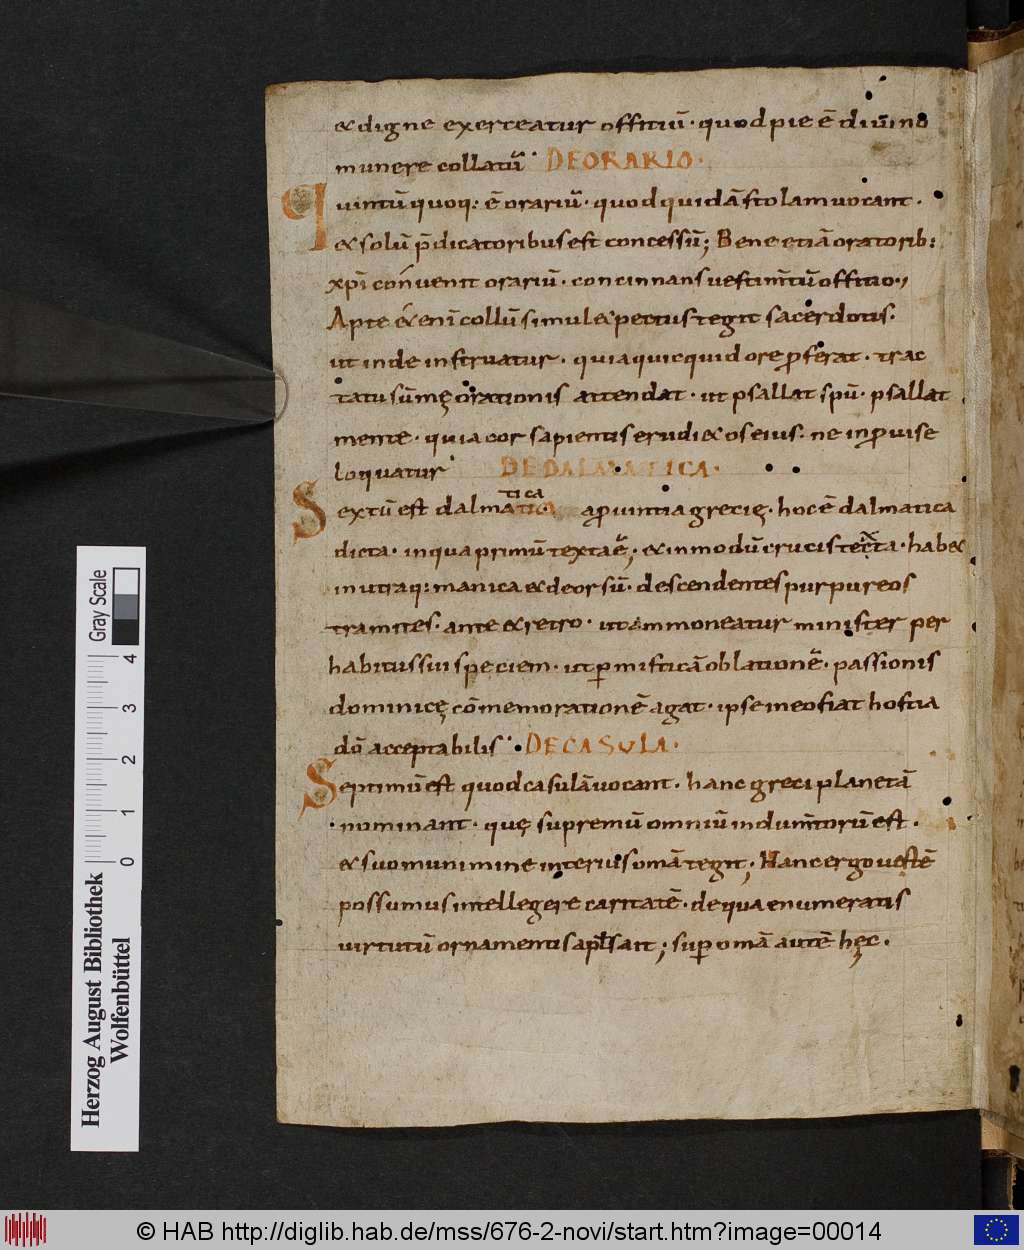 & digne exerceatur offitiū· quod pie ē diuino
munere collatū· DE ORARIO·
Quintū quoq: ē orariū· quod quidā stolam uocant·
& solū p̄dicatoribus est concessū; Bene etiā oratorib:
xp̄i conuenit orariū· concinnans uestim̄tū offitio·,
Apte & eni collū simul & pectus tegit sacerdotis·
ut inde instruatur· quia quicquid ore ꝓferat· trac
tatu sūmę orationis attendat· ut psallat spū· psallat
mente· quia cor sapientis erudi& os eius· ne inꝓuise
loquatur· DE DALMATICA·
Sextū est dalmatica a ꝓuintia grecię· hoc ē dalmatica
dicta· in qua primū texta ē; & in modū crucis tecta· hab&
in utraq: manica & deorsū· descendentes purpureos
tramites· ante & retro· ut ammoneatur minister per
habitus sui speciem· ut ꝑ misticā oblationē· passionis
dominicę cōmemorationē agat· ipse in eo fiat hostia
dō acceptabilis· DE CASULA·
Septimū est quod casulā uocant· hanc greci planetā
·nominant· quę supremū omniū indum̄torū est·
& suo munimine interius om̄a tegit; Hanc ergo uestē
possumus intellegere caritatē· de qua enumeratis
uirtutū ornamentis apl̄s ait; suꝑ om̄a autē hęc·
Gray Scale
0 1 2 3 4
Herzog August Bibliothek
Wolfenbüttel
© HAB http://diglib.hab.de/mss/676-2-novi/start.htm?image=00014